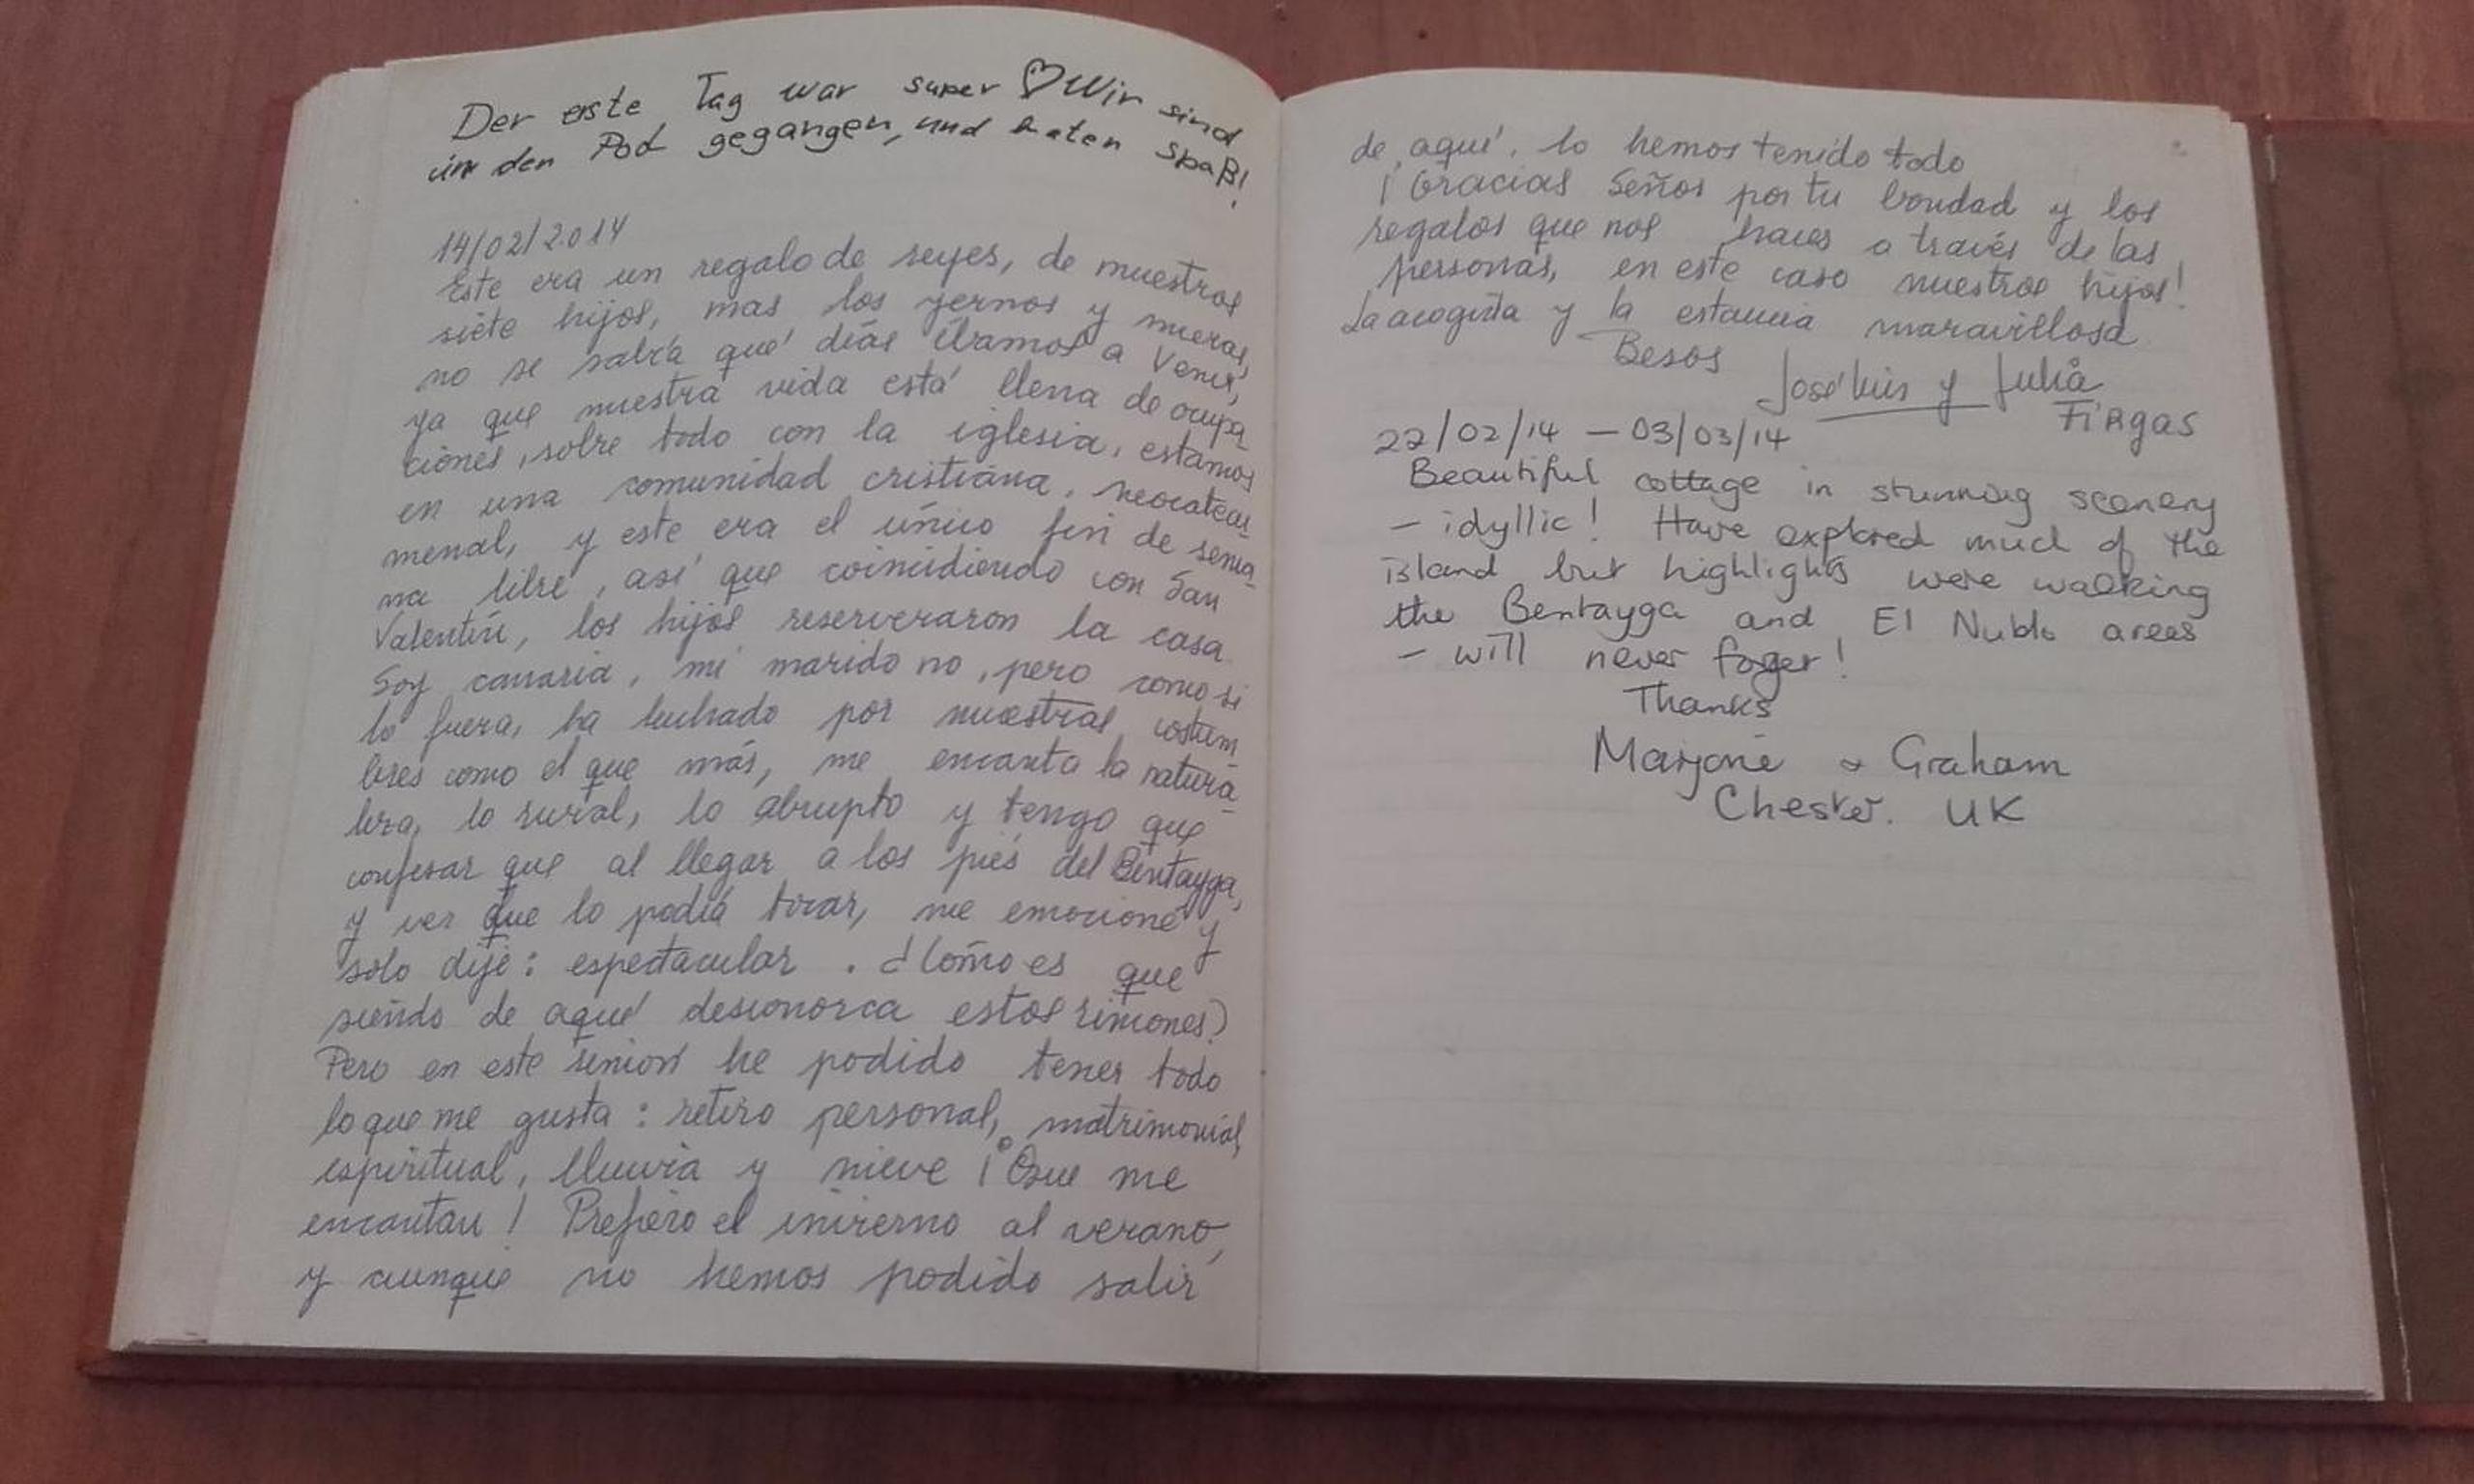 Der erste Tag war super ♡ Wir sind
in den Pod gegangen, und haten Spaß!
14/02/2014
Este era un regalo de reyes, de nuestros
siete hijos, mas los yernos y nueras,
no se sabía qué días íbamos a venir,
ya que nuestra vida está llena de ocupa
ciones, sobre todo con la iglesia, estamos
en una comunidad cristiana, neocatecu
menal, y este era el único fin de sema
na libre, así que coincidiendo con San
Valentín, los hijos reserveraron la casa.
Soy canaria, mi marido no, pero como si
lo fuera, ha luchado por nuestras costum
bres como el que más, me encanta la natura-
leza, lo rural, lo abrupto y tengo que
confesar que al llegar a los piés del Bentayga,
y ver que lo podía tocar, me emocioné y
solo dije: espectacular. ¿Cómo es que
siendo de aquí desconozca estos rincones?
Pero en este rincón he podido tener todo
lo que me gusta: retiro personal, matrimonial,
espiritual, lluvia y nieve ¡Que me
encantan! Prefiero el invierno al verano,
y aunque no hemos podido salir
de aquí, lo hemos tenido todo
¡Gracias Señor por tu bondad y los
regalos que nos haces a través de las
personas, en este caso nuestros hijos!
La acogida y la estancia maravillosa
Besos
José Luis y Julia
Firgas
22/02/14 - 03/03/14
Beautiful cottage in stunning scenery
- idyllic! Have explored much of the
island but highlights were walking
the Bentayga and El Nublo areas
- will never forget!
Thanks
Marjorie & Graham
Chester. UK